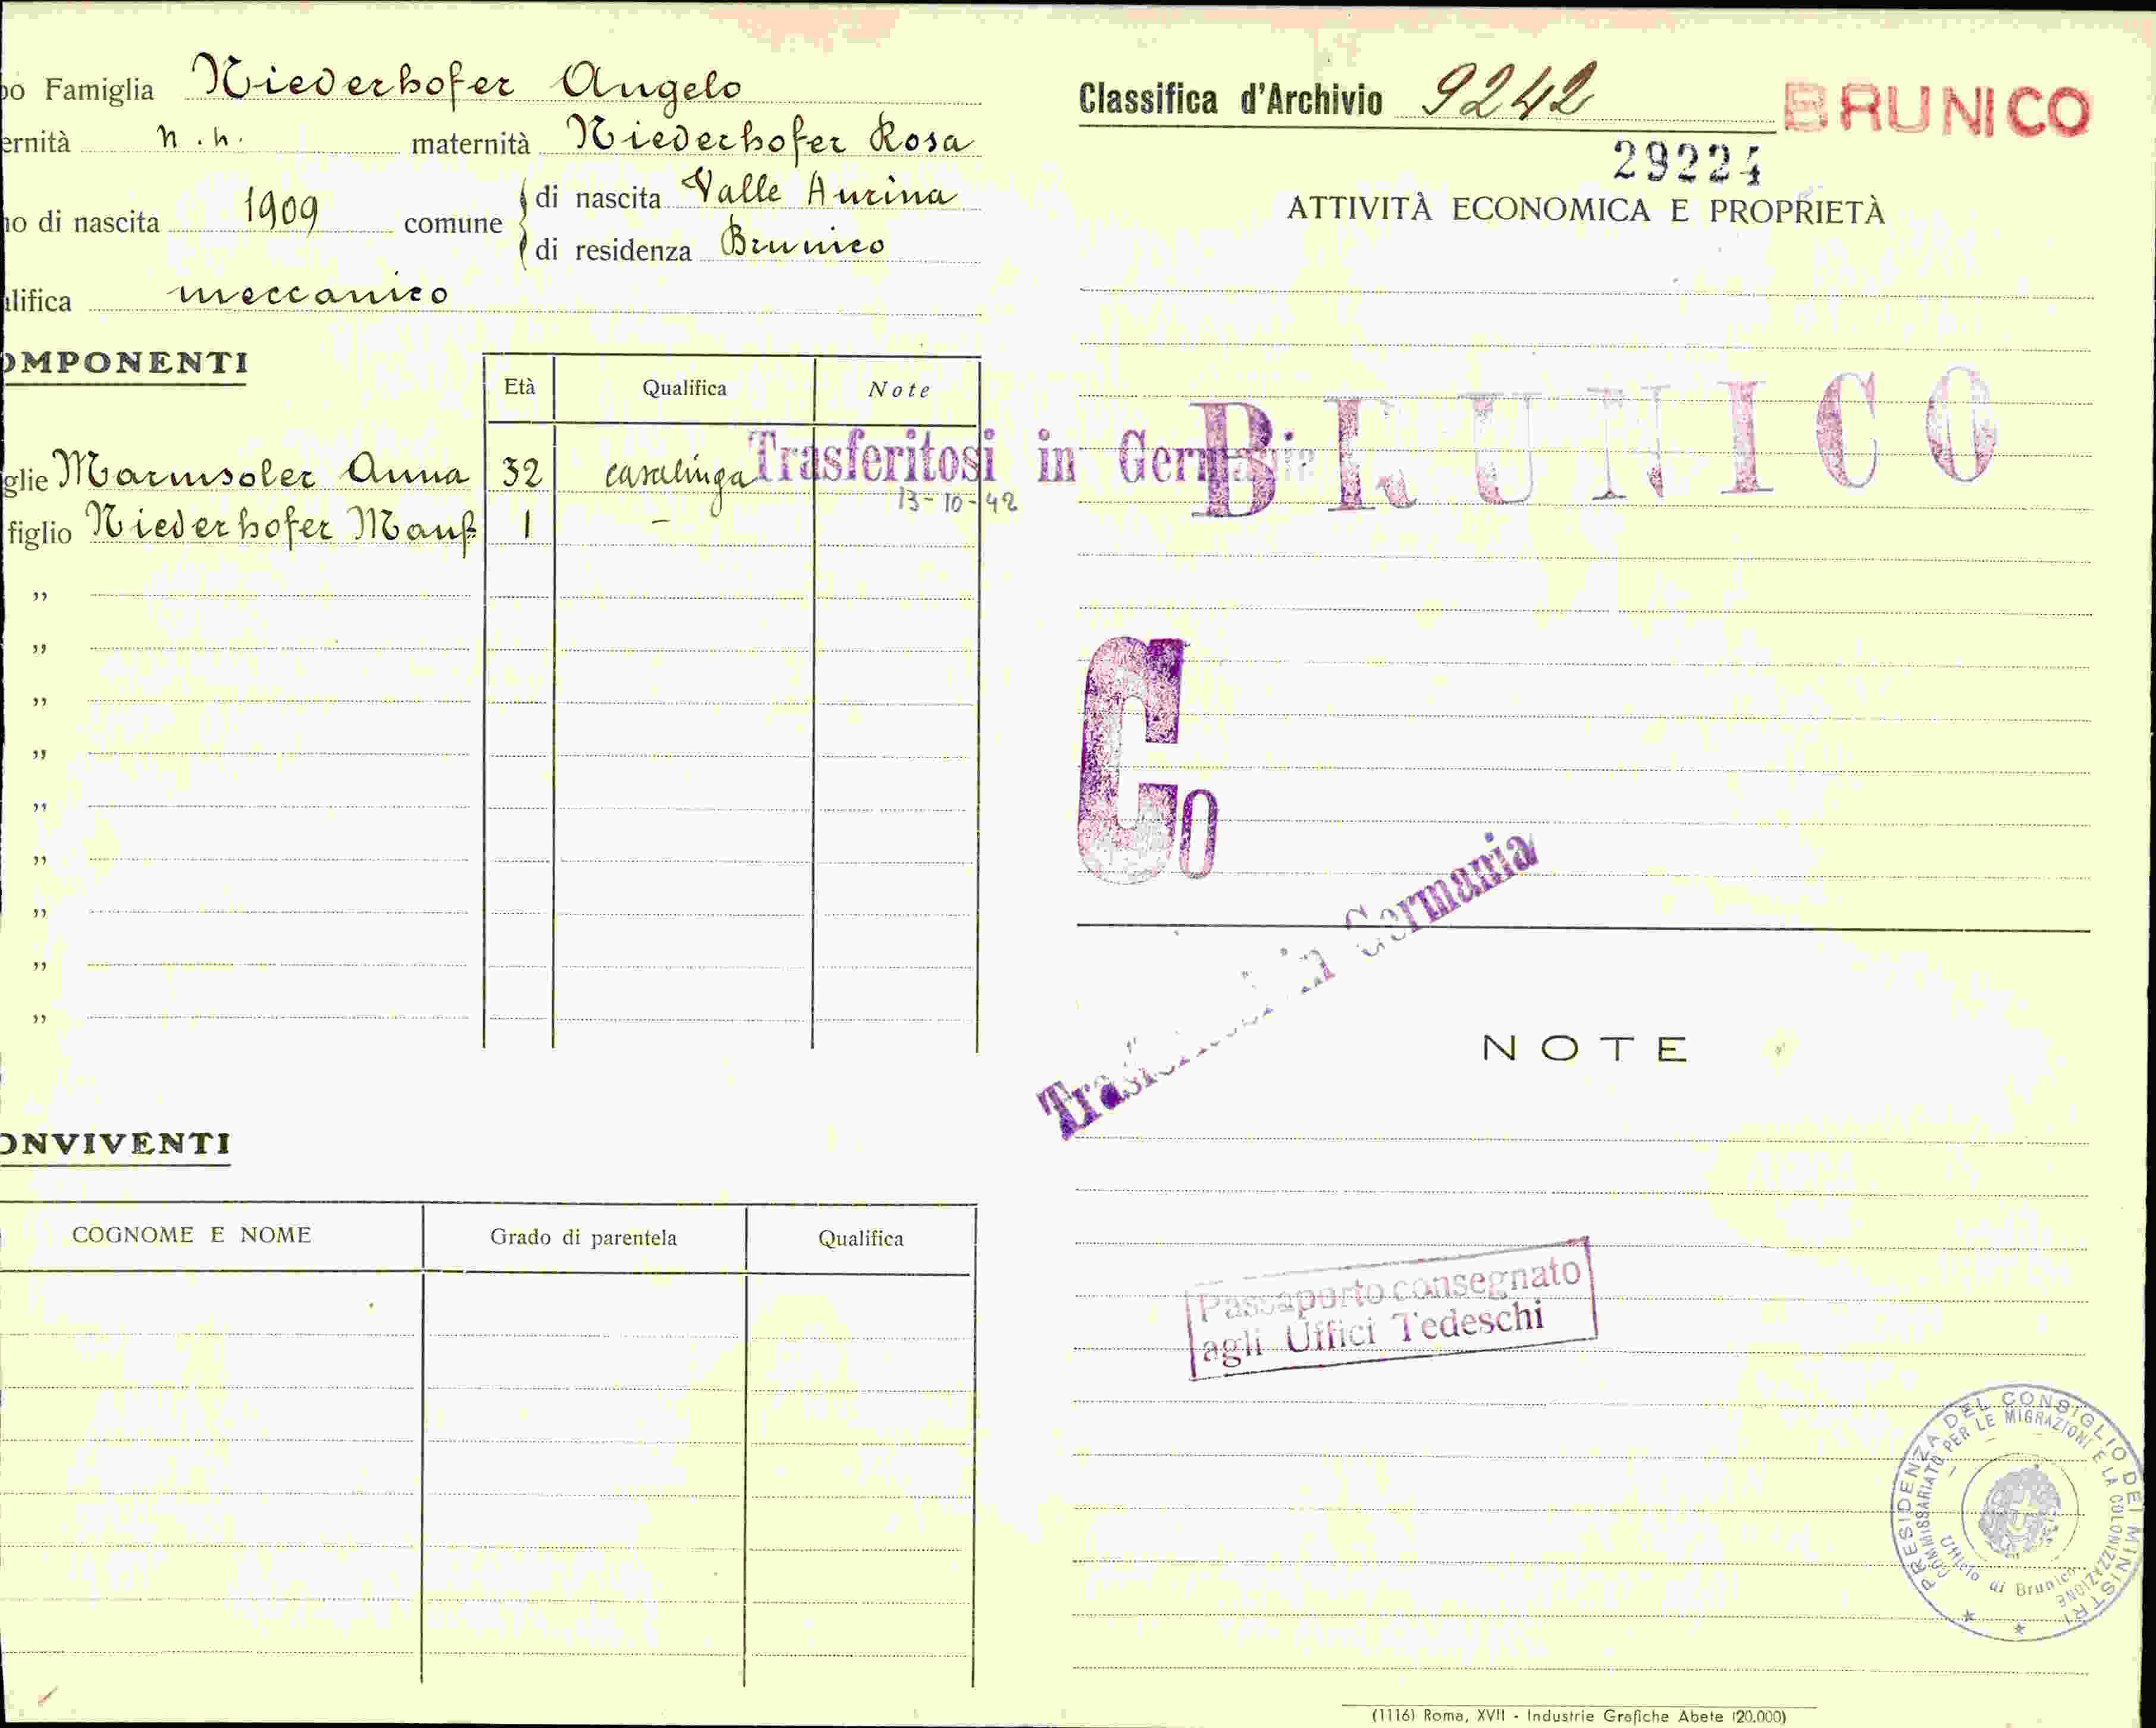 po Famiglia Niederhofer Angelo
ernità n.n. maternità Niederhofer Rosa
no di nascita 1909 comune di nascita Valle Aurina
di residenza Brunico
alifica meccanico
OMPONENTI
Età Qualifica Note
glie Marmsoler Anna 32 casalinga
Trasferitosi in Germania
13-10-42
figlio Niederhofer 1 –
"
"
"
"
"
"
"
"
"
ONVIVENTI
COGNOME E NOME Grado di parentela Qualifica
Classifica d'Archivio 9242 BRUNICO
29224
ATTIVITÀ ECONOMICA E PROPRIETÀ
BRUNICO
Co
Trasferitosi in Germania
NOTE
Passaporto consegnato
agli Uffici Tedeschi
PRESIDENZA DEL CONSIGLIO DEI MINISTRI
COMMISSARIATO PER LE MIGRAZIONI E LA COLONIZZAZIONE
Ufficio di Brunico
(1116) Roma, XVII - Industrie Grafiche Abete (20.000)